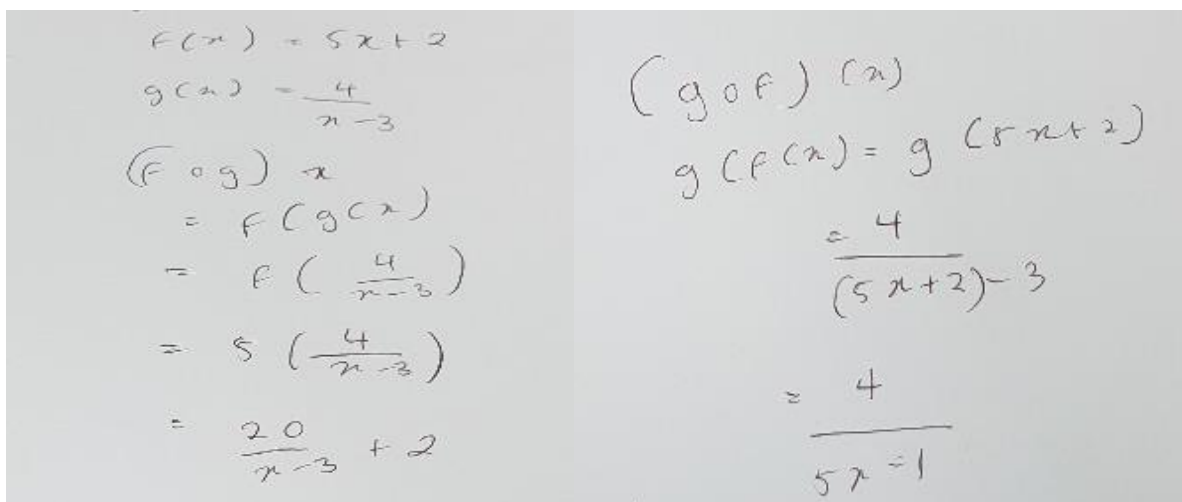 f(x) = 5x+2
g(x) = 4/(x-3)
(f o g) x
= f(g(x)
= f(4/(x-3))
= 5(4/(x-3))
= 20/(x-3) + 2
(g o f)(x)
g(f(x) = g(5x+2)
= 4/((5x+2)-3)
= 4/(5x-1)